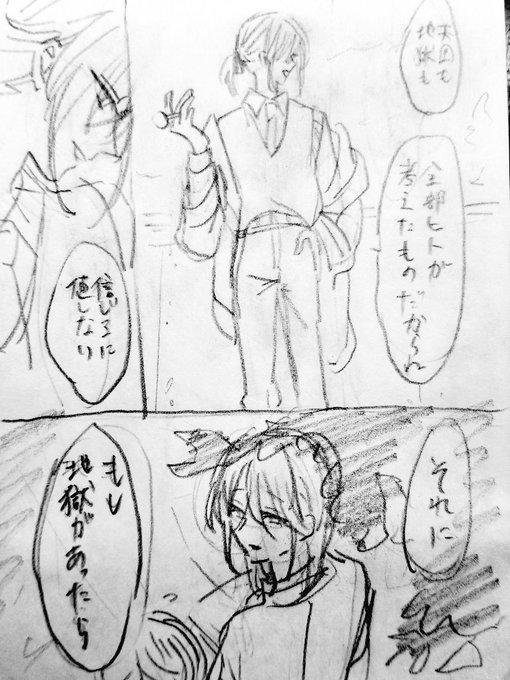 天国も
地獄も
全部ヒトが
考えたものだからね
信じるに
値しない
それに
もし
地獄があったら